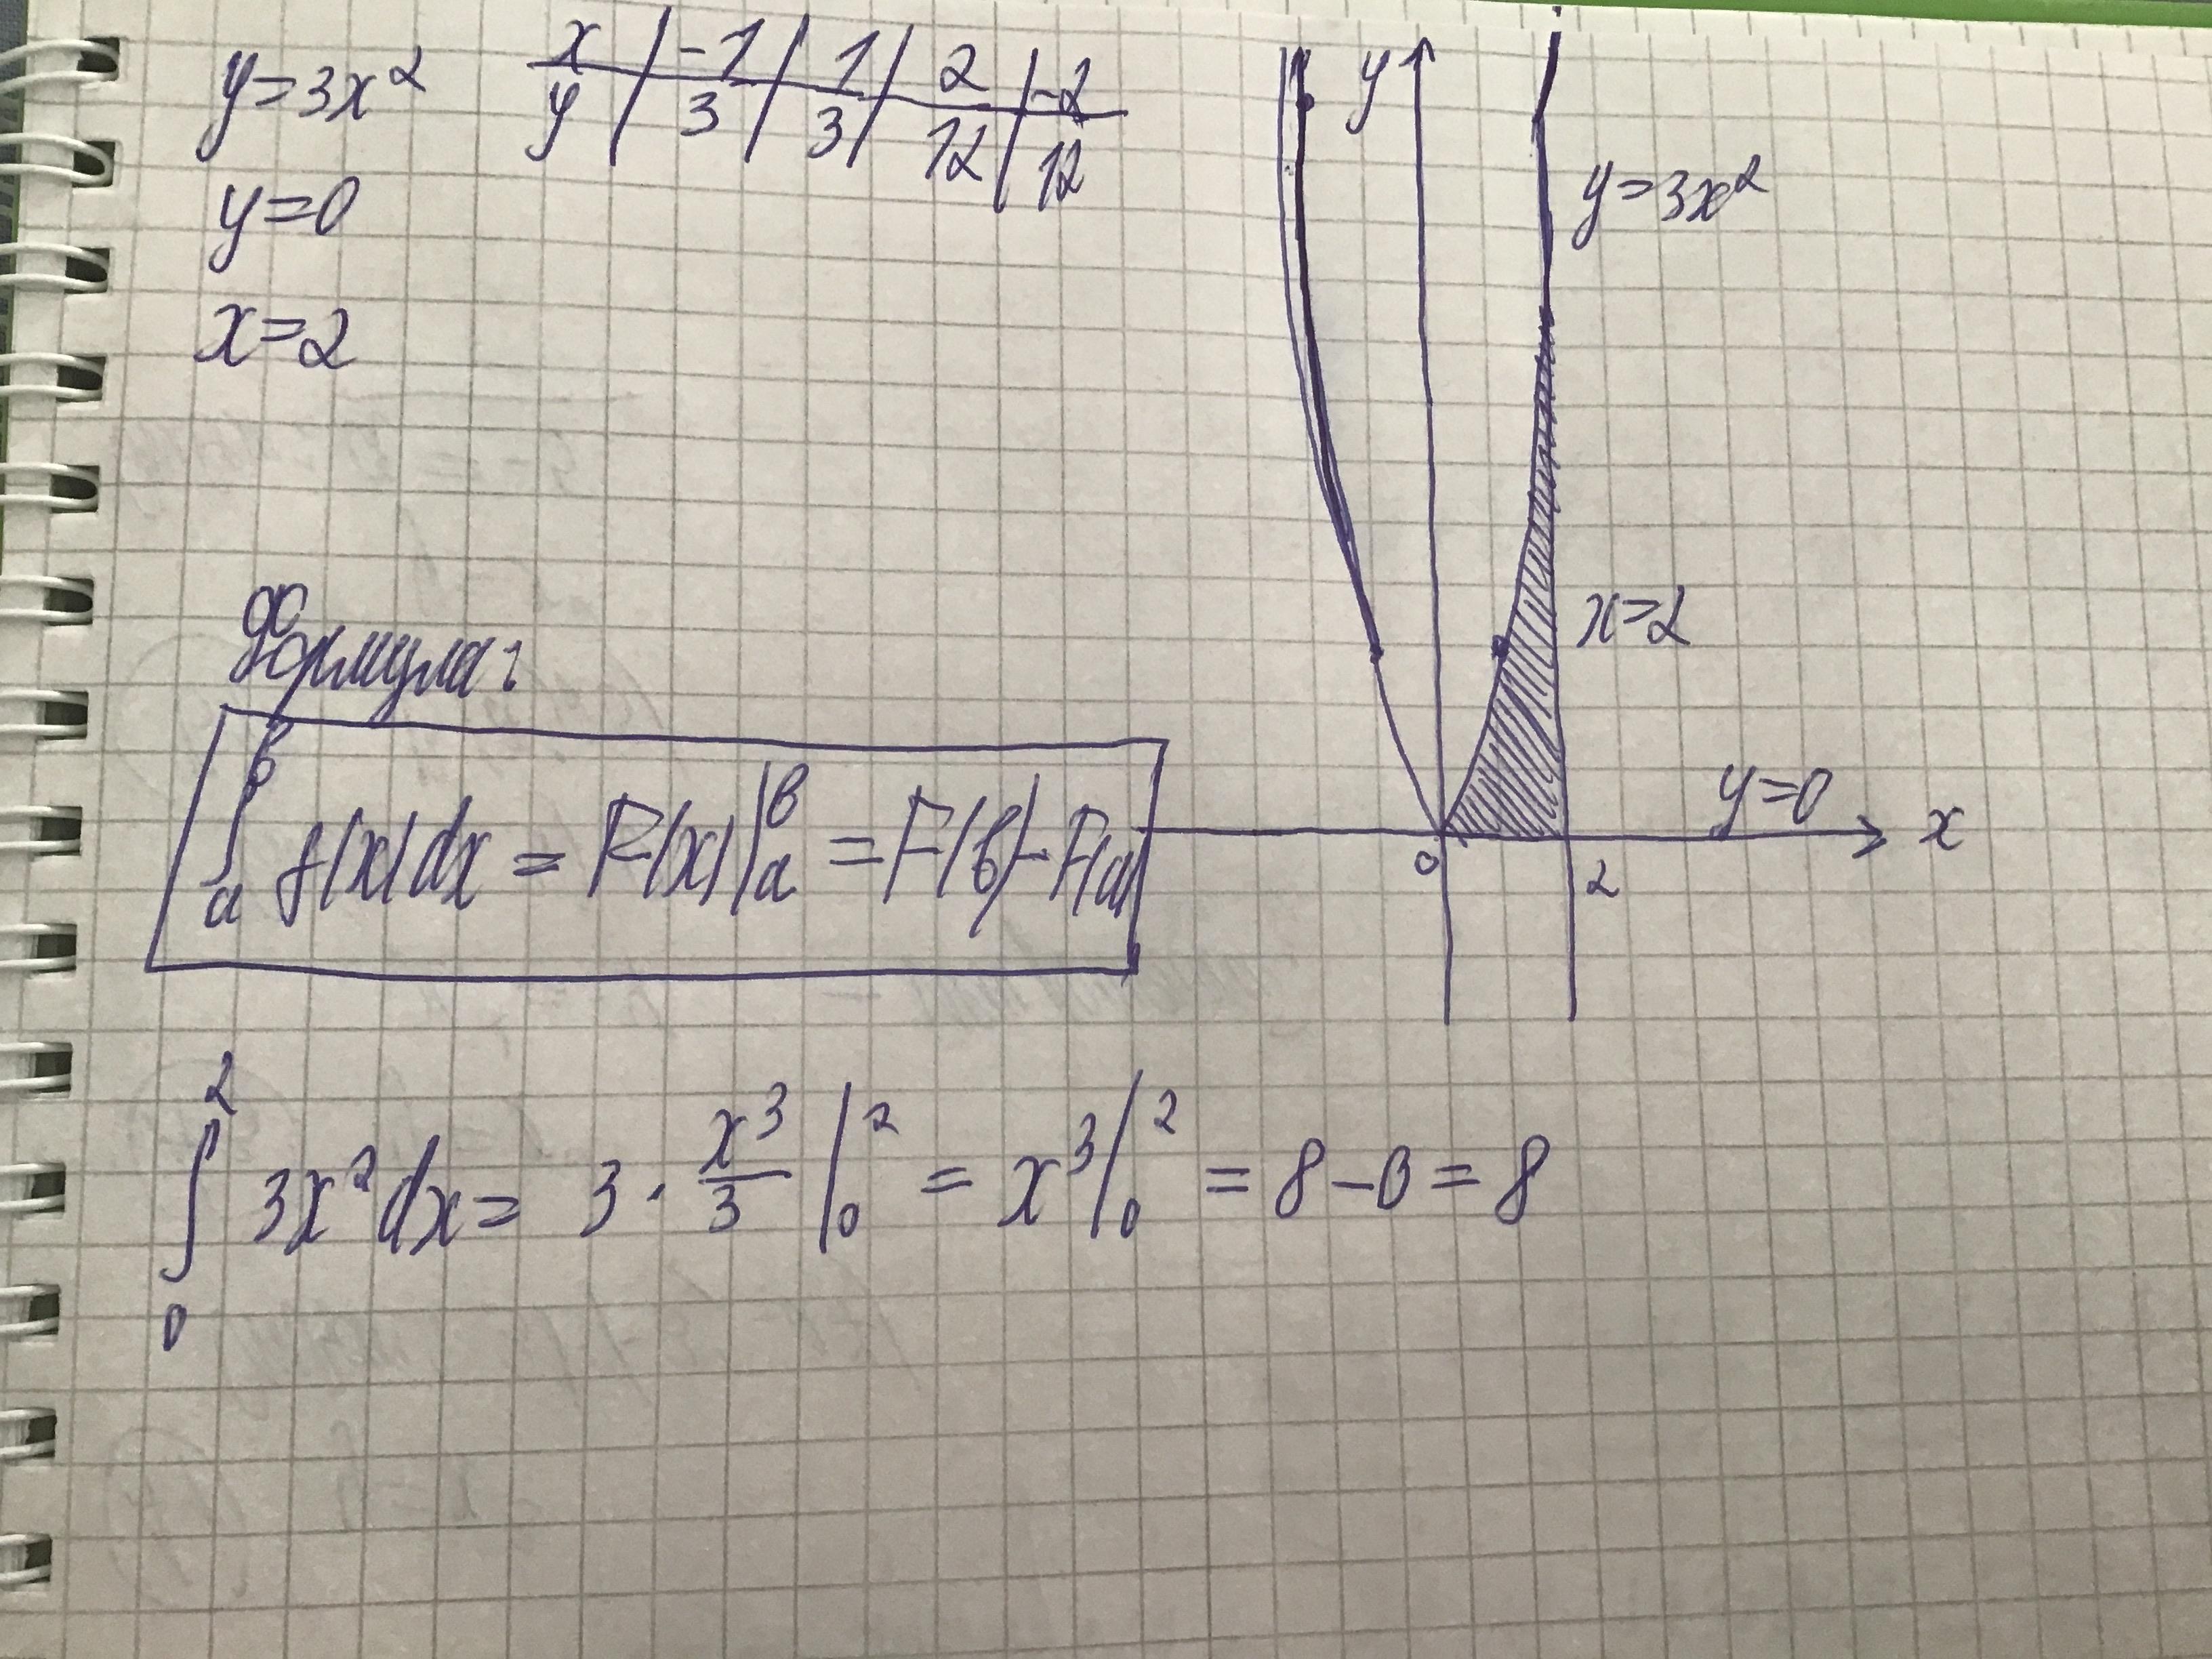 y=3x²
x | -1 | 1 | 2 | -2
y | 3 | 3 | 12 | 12
y=0
x=2
y
y=3x²
x=2
y=0
x
0
2
формула:
∫ₐᵇ f(x)dx = F(x)|ₐᵇ = F(b)-F(a)
∫₀² 3x²dx = 3 · x³/3 |₀² = x³|₀² = 8-0=8